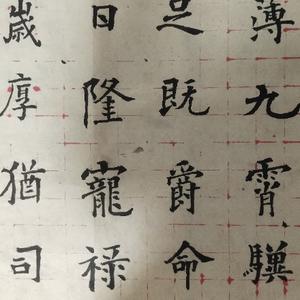 薄九霄驥
足既爵命
日隆寵禄
歲厚猶司